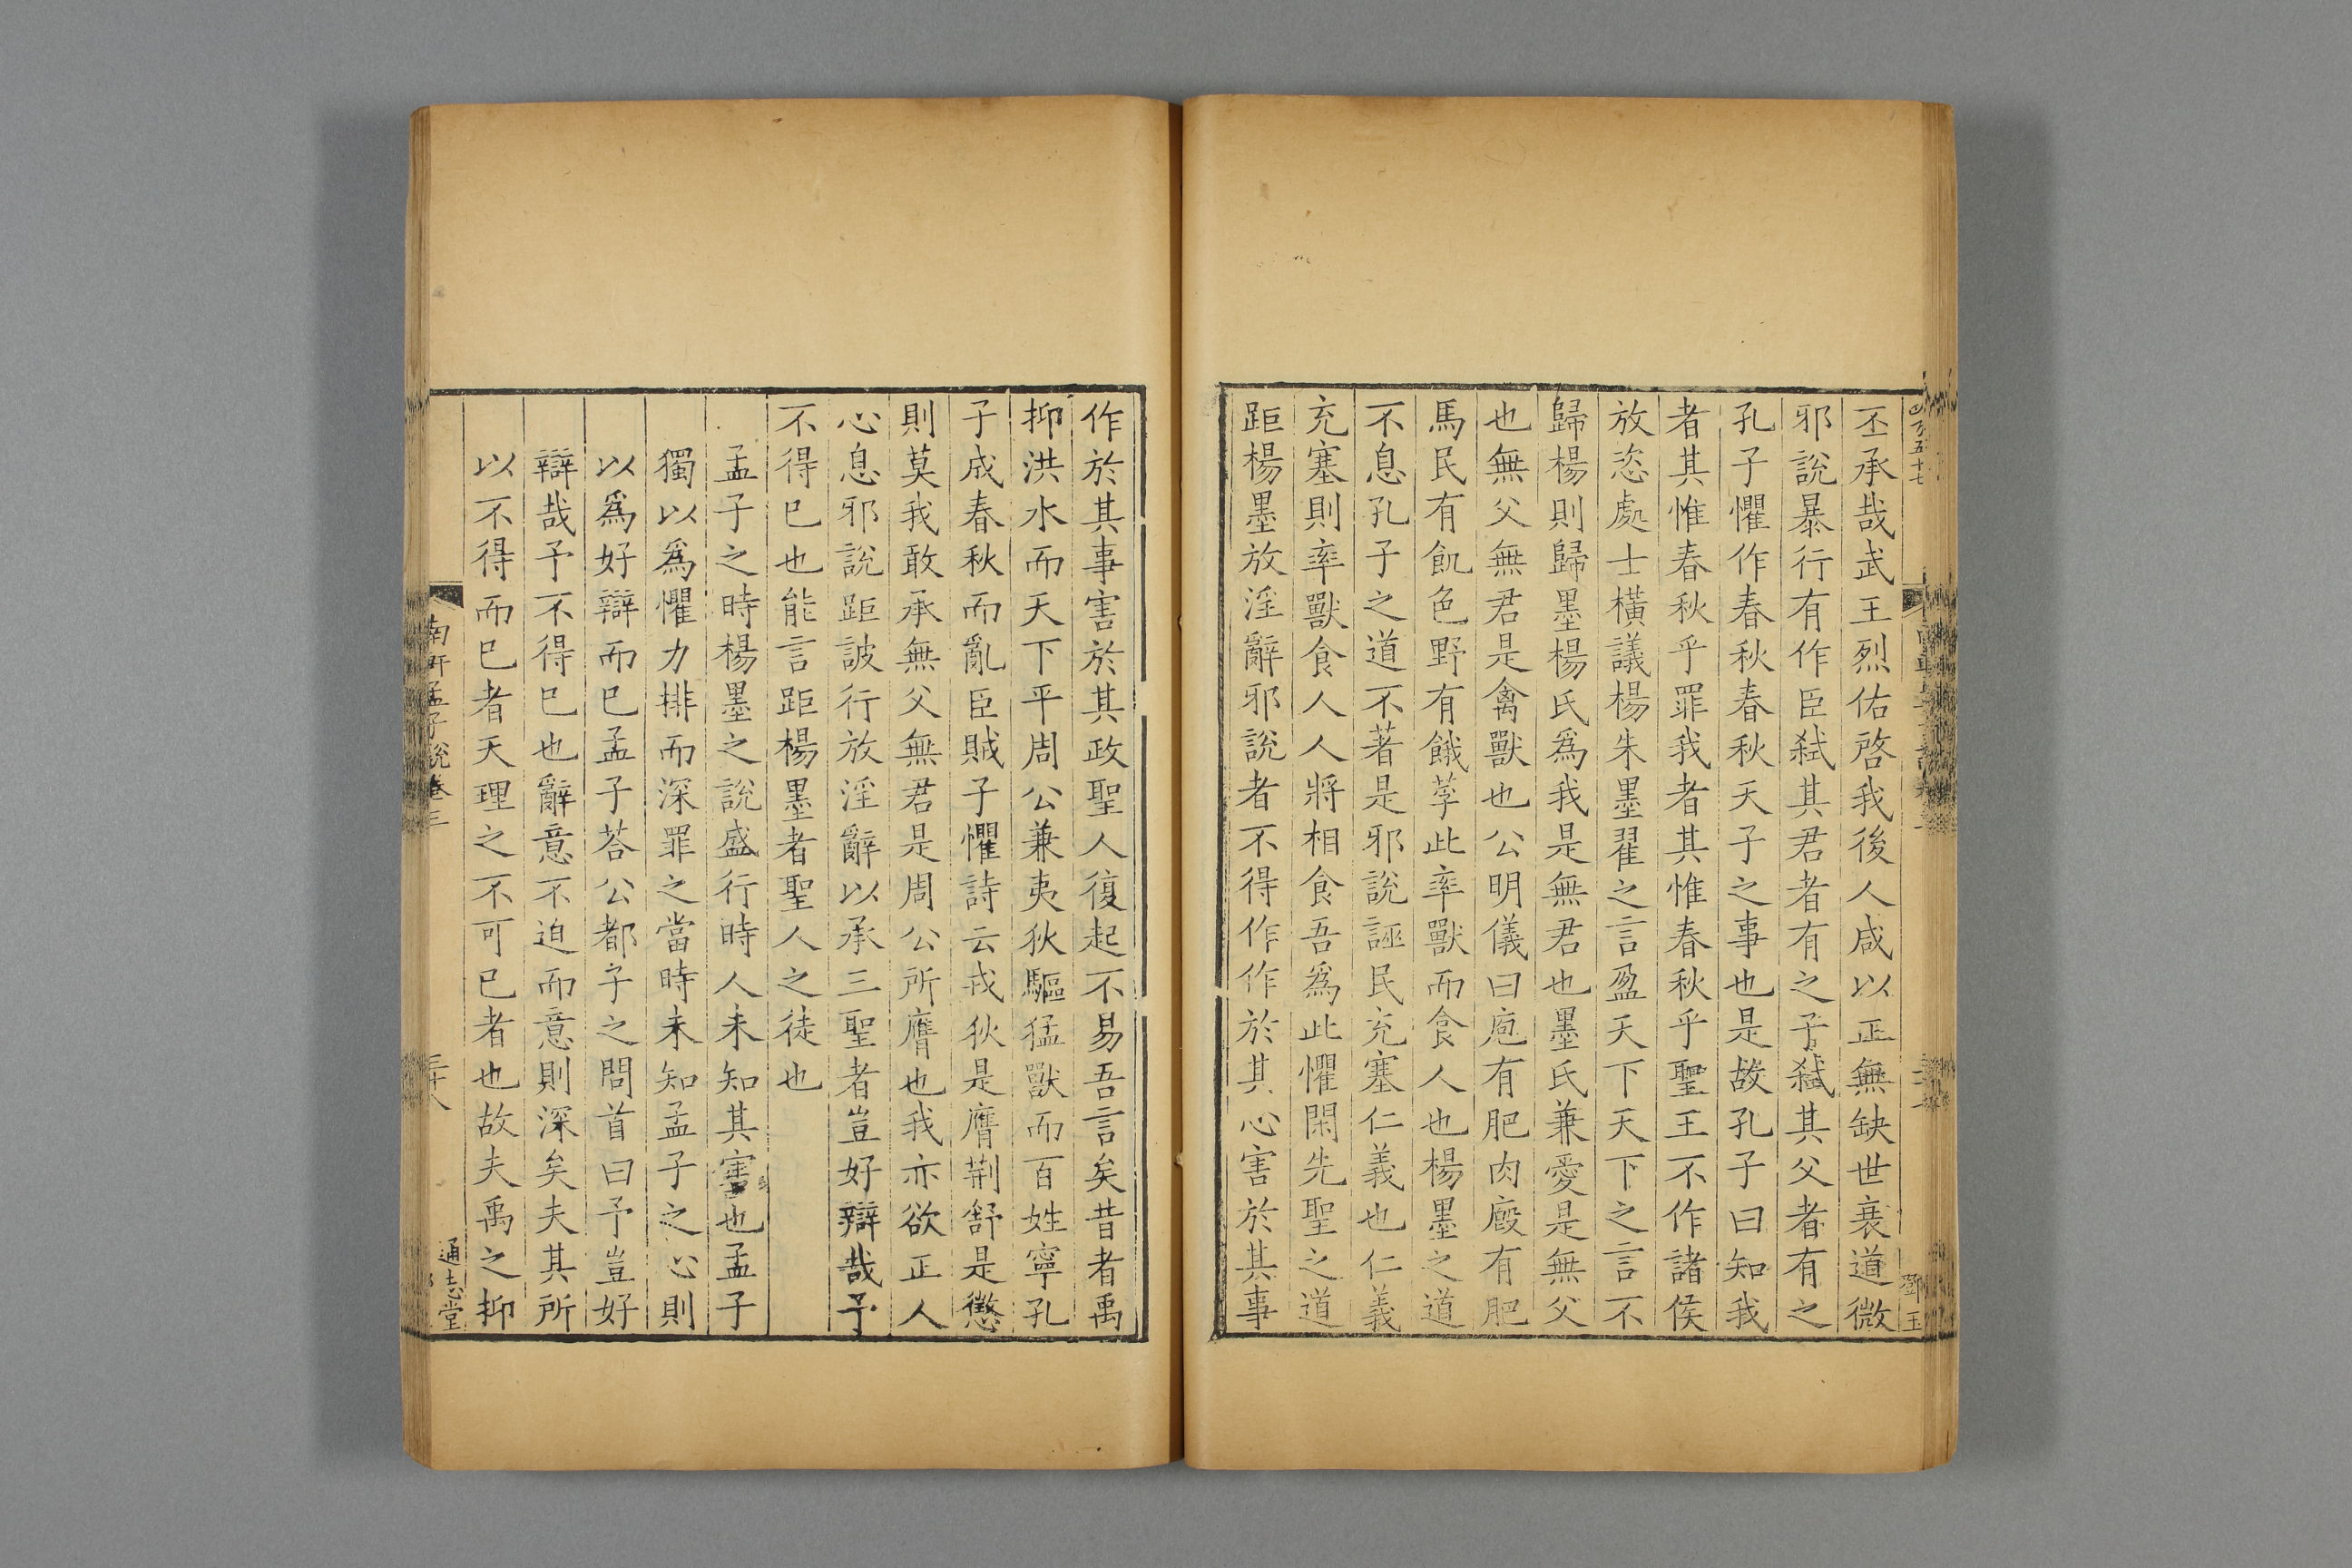 丕承哉武王烈佑啓我後人咸以正無缺世衰道微
邪說暴行有作臣弑其君者有之子弑其父者有之
孔子懼作春秋春秋天子之事也是故孔子曰知我
者其惟春秋乎罪我者其惟春秋乎聖王不作諸侯
放恣處士橫議楊朱墨翟之言盈天下天下之言不
歸楊則歸墨楊氏爲我是無君也墨氏兼愛是無父
也無父無君是禽獸也公明儀曰庖有肥肉廄有肥
馬民有飢色野有餓莩此率獸而食人也楊墨之道
不息孔子之道不著是邪說誣民充塞仁義也仁義
充塞則率獸食人人將相食吾爲此懼閑先聖之道
距楊墨放淫辭邪說者不得作作於其心害於其事
作於其事害於其政聖人復起不易吾言矣昔者禹
抑洪水而天下平周公兼夷狄驅猛獸而百姓寧孔
子成春秋而亂臣賊子懼詩云戎狄是膺荆舒是懲
則莫我敢承無父無君是周公所膺也我亦欲正人
心息邪說距詖行放淫辭以承三聖者豈好辯哉予
不得已也能言距楊墨者聖人之徒也
孟子之時楊墨之說盛行時人未知其害也孟子
獨以爲懼力排而深罪之當時未知孟子之心則
以爲好辯而已孟子荅公都子之問首曰予豈好
辯哉予不得已也辭意不迫而意則深矣夫其所
以不得而已者天理之不可已者也故夫禹之抑
南軒孟子說卷三
三十八
通志堂
鄧玉